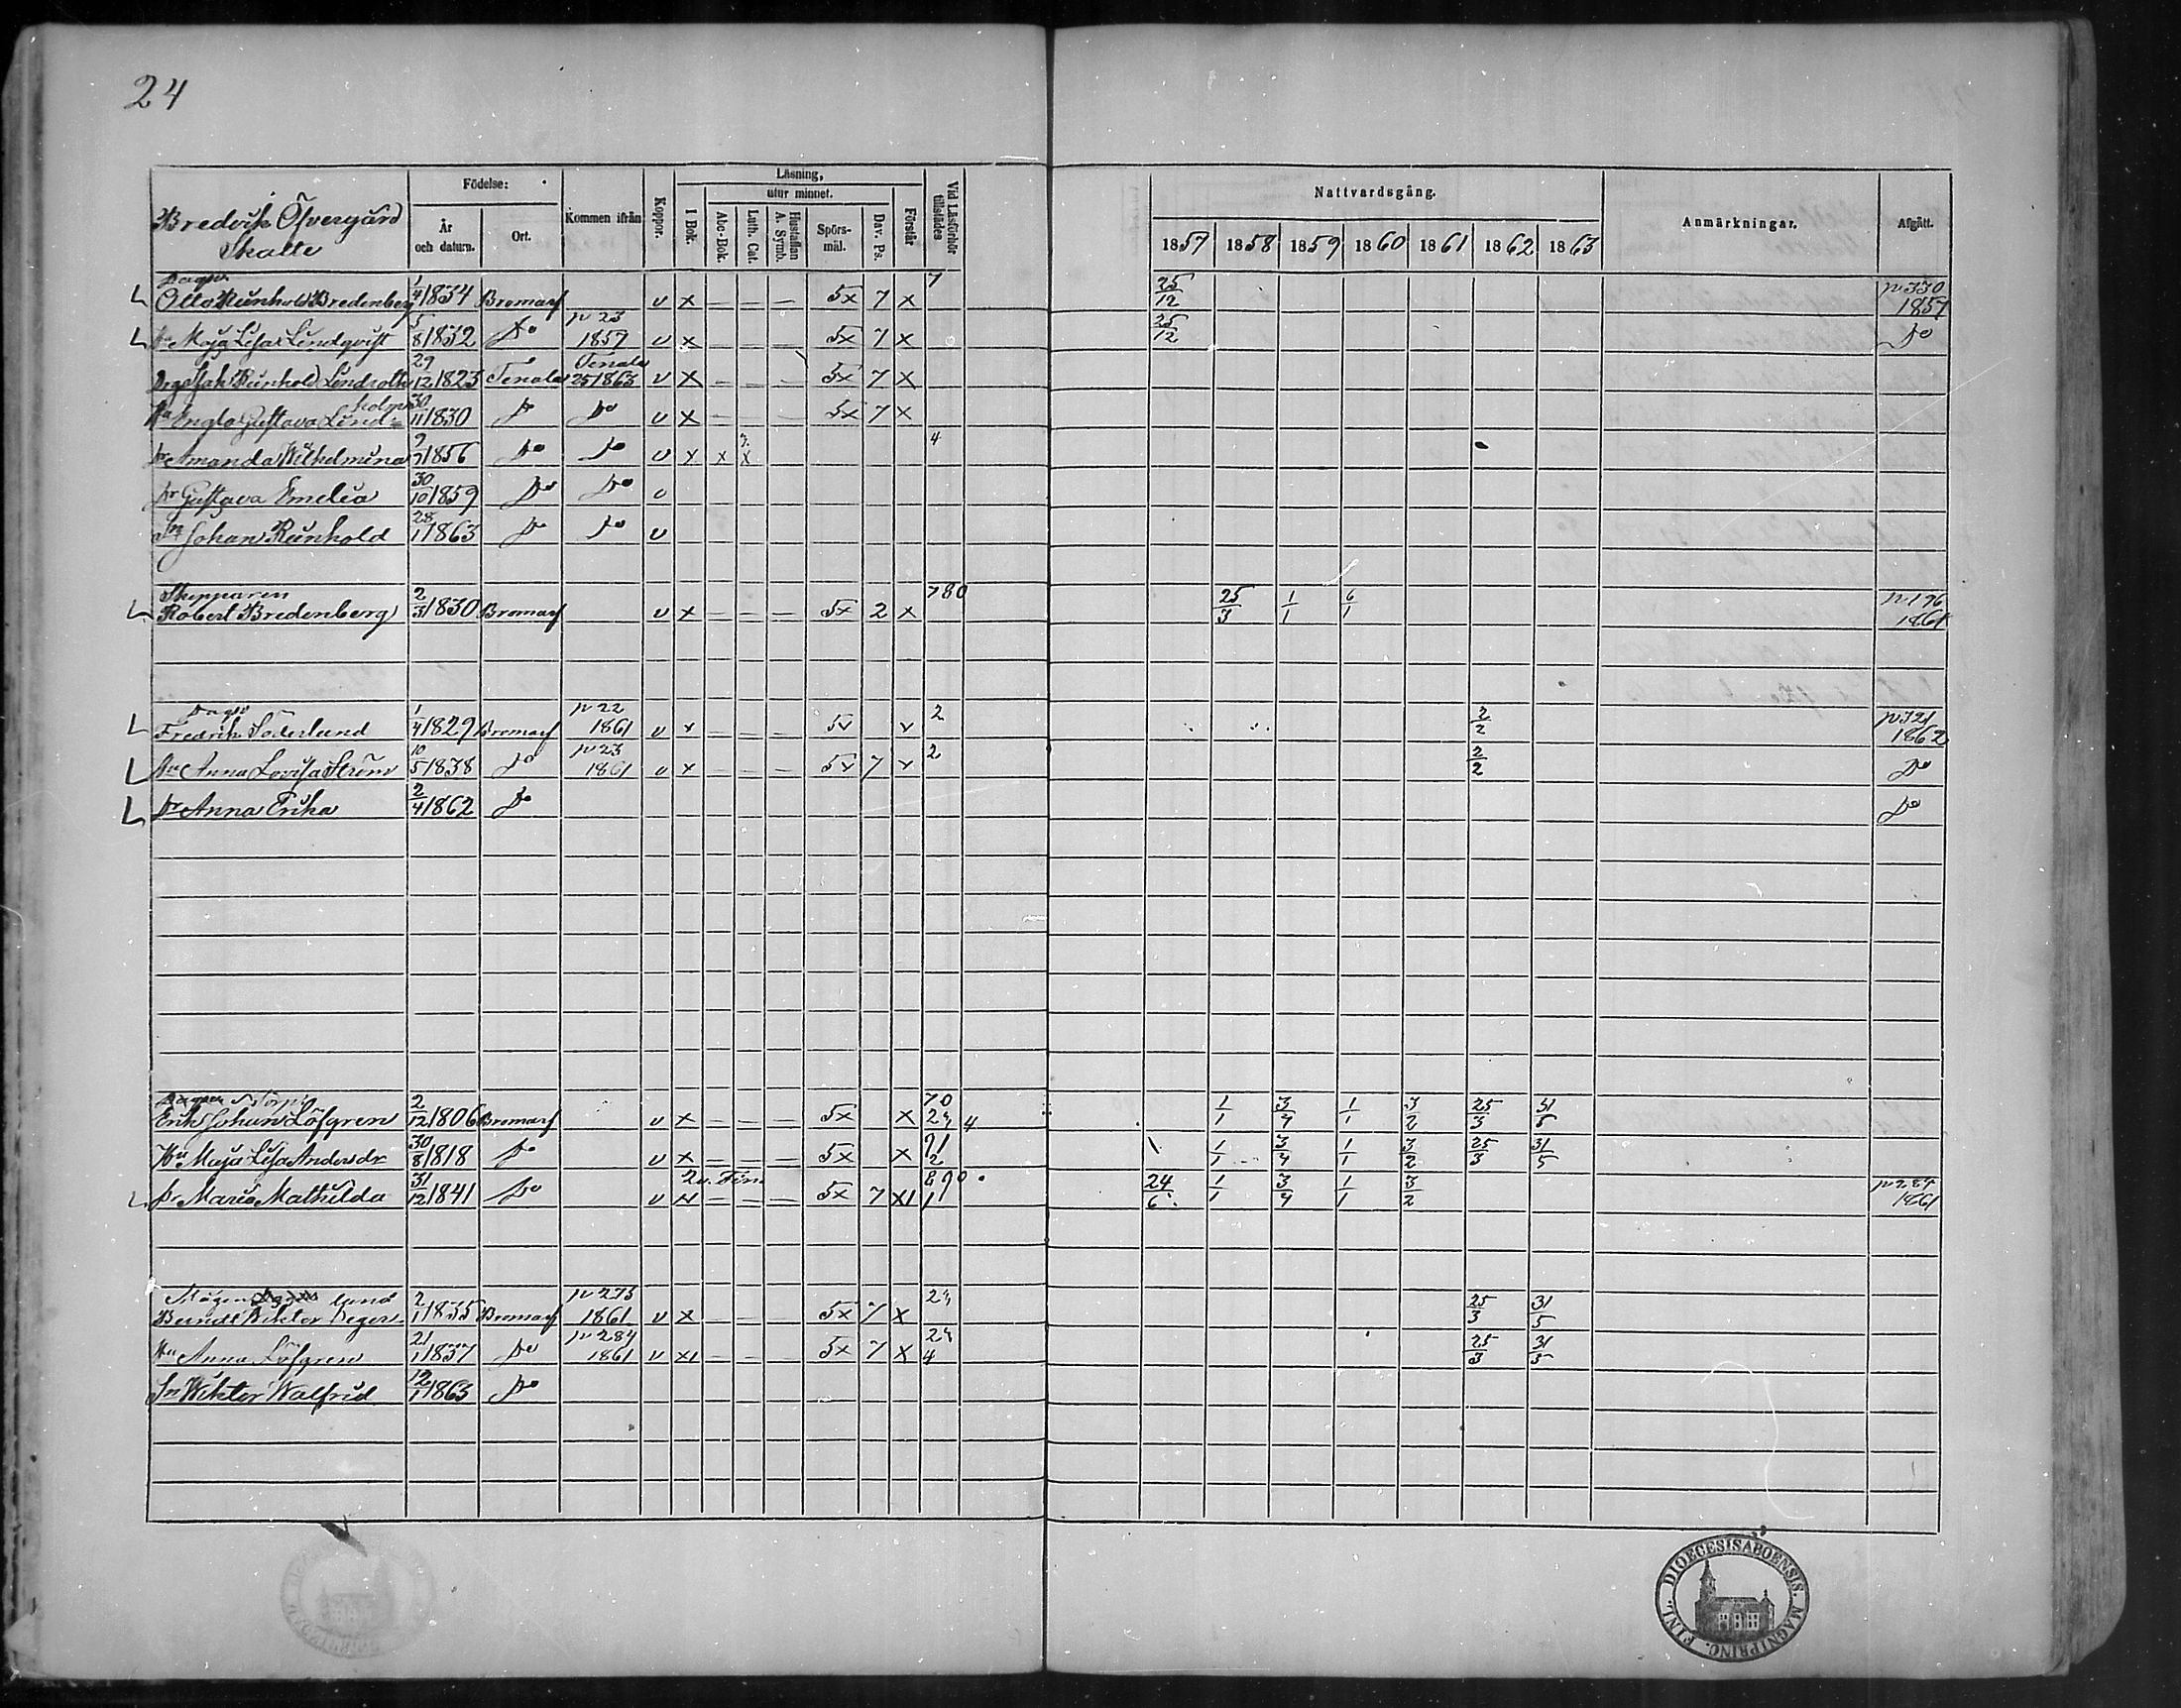 24
Bredvik Öfvergård
Skatte
Födelse:
År och datum.
Ort.
Kommen ifrån
Koppor.
Läsning,
I Bok.
utur minnet.
Abc-Bok.
Luth. Cat.
Hustaflan A. Symb.
Spörs-mål.
Dav. Ps.
Förstår
Vid Läsförhör tillstädes
Nattvardsgång.
1857 1858 1859 1860 1861 1862 1863
Anmärkningar.
Afgått.
Otto Reinhold Bredenberg 1/4 1834 Bromarf v x — — — 5x 7 x 7 25/12 p 330 1857
Hu Maja Lisa Lindqvist 5/8 1832 Do p 23 1857 v x — — — 5x 7 x 25/12 Do
Reinhold Lindroth 29/12 1823 Tenala Tenala 25 1863 v x — — — 5x 7 x
Hu Gustava Lindholm 30/11 1830 Do Do v x — — — 5x 7 x
Dr Amanda Wilhelmina 9/7 1856 Do Do v x x x — — 4
Dr Gustava Emelia 30/10 1859 Do Do v
Sn Johan Reinhold 28/1 1863 Do Do v
Skepparen
Robert Bredenberg 2/3 1830 Bromarf v x — — — 5x 2 x 780 25/3 1/1 6/1 p 196 1861
Fredrik Söderlund 1/4 1829 Bromarf p 22 1861 v x — — — 5x x 2 2/2 p 321 1862
Hu Anna Lovisa Ström 10/5 1838 Do p 23 1861 v x — — — 5x 7 x 2 2/2 Do
Dr Anna Erika 2/4 1862 Do Do
Erik Johan Löfgren 2/12 1806 Bromarf v x — — — 5x x 70 24 4 1/1 3/4 1/1 3/2 25/3 31/5
Hu Maja Lisa Andersdr 30/8 1818 Do v x — — — 5x x 91 2 1/1 3/4 1/1 3/2 25/3 31/5
Dr Maria Mathilda 31/12 1841 Do v x — — — 5x 7 x 890 1 24/6 1/1 3/4 1/1 3/2 p 284 1861
Mågen
2/1 1835 Bromarf p 275 1861 v x — — — 5x 7 x 24 25/3 31/5
Hu Anna Löfgren 21/1 1837 Do p 284 1861 v x — — — 5x 7 x 24 4 25/3 31/5
Sn Wiktor Walfrid 12/1 1863 Do
DIOECESIS ABOENSIS. MAGNI PRINC. FINL.